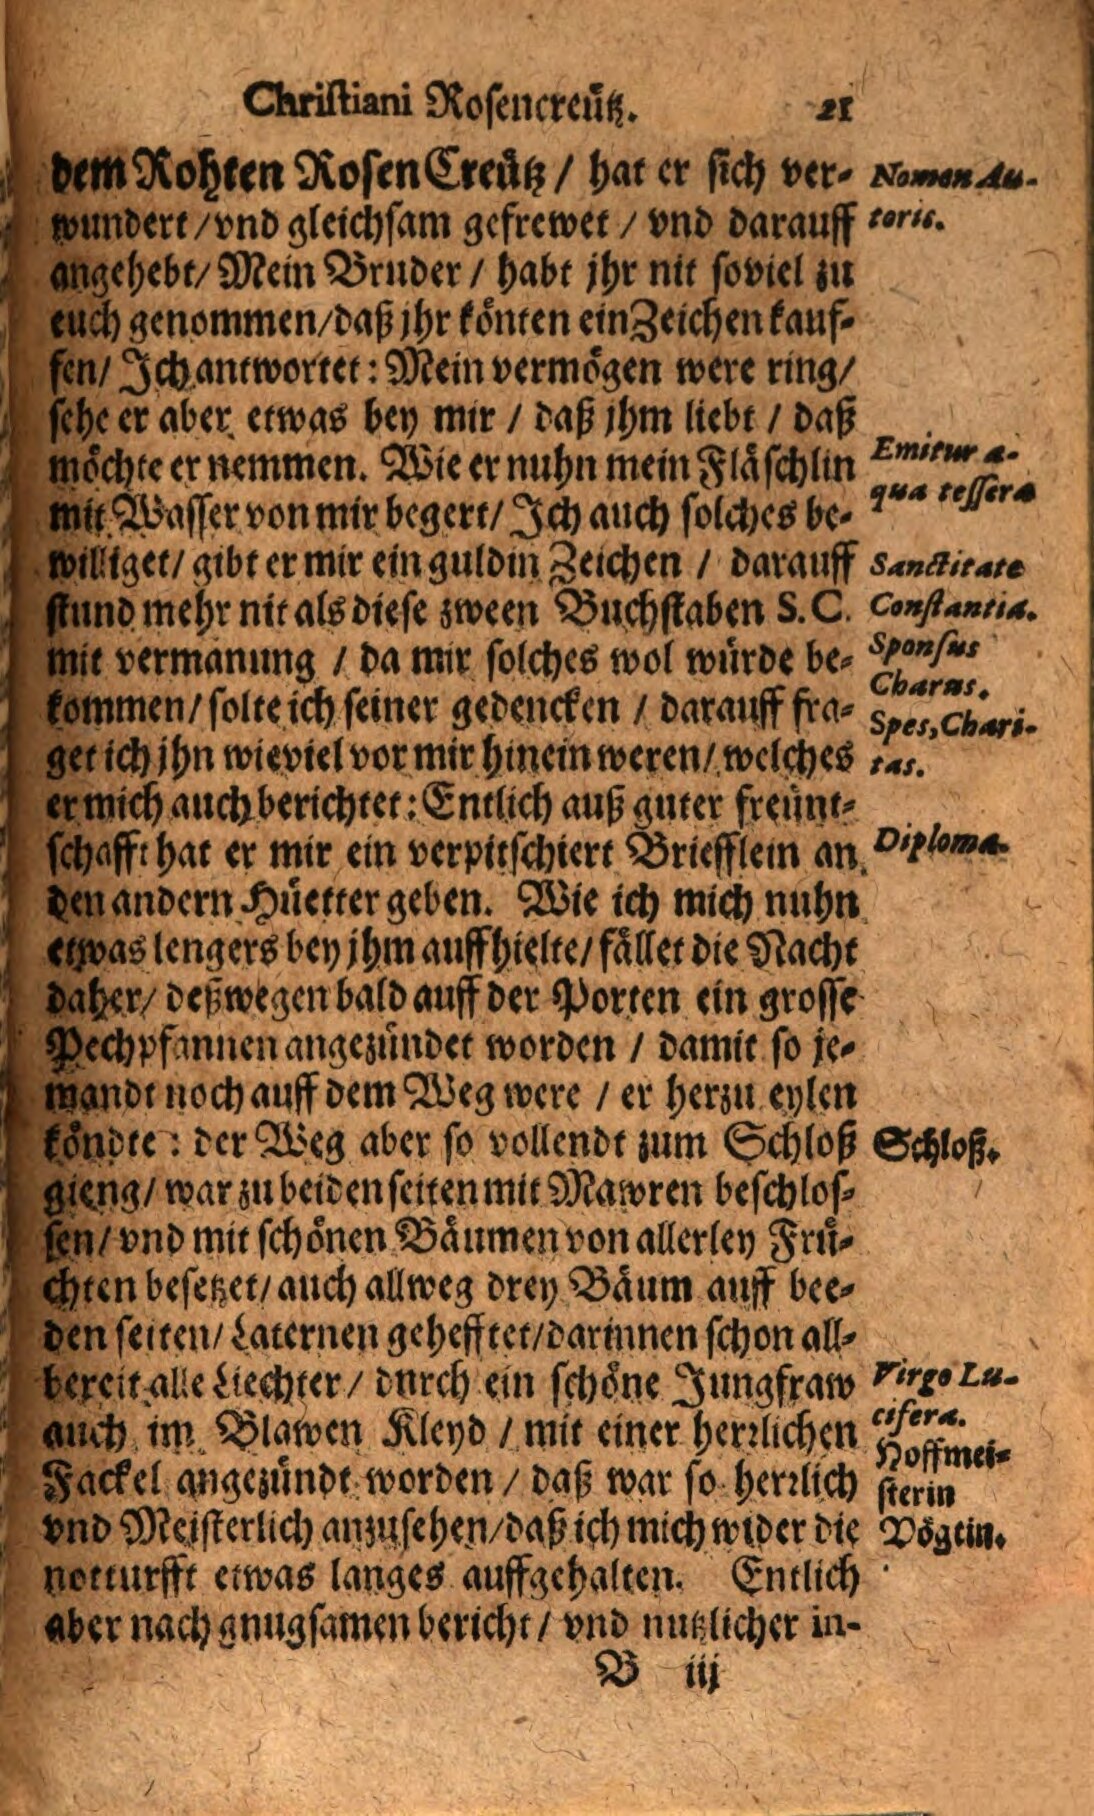 Christiani Rosencreütz. 21
dem Rohten Rosen Creütz / hat er sich ver-
wundert / vnd gleichsam gefrewet / vnd darauff
angehebt / Mein Bruder / habt jhr nit soviel zu
euch genommen / daß jhr könten ein Zeichen kauf-
fen / Jch antwortet : Mein vermögen were ring /
sehe er aber etwas bey mir / daß jhm liebt / daß
möchte er nemmen. Wie er nuhn mein Fläschlin
mit Wasser von mir begert / Jch auch solches be-
williget / gibt er mir ein guldin Zeichen / darauff
stund mehr nit als diese zween Buchstaben S. C.
mit vermanung / da mir solches wol würde be-
kommen / solte ich seiner gedencken / darauff fra-
get ich jhn wieviel vor mir hinein weren / welches
er mich auch berichtet : Entlich auß guter freünt-
schafft hat er mir ein verpitschiert Briefflein an
den andern Hüetter geben. Wie ich mich nuhn
etwas lengers bey jhm auffhielte / fället die Nacht
daher / deßwegen bald auff der Porten ein grosse
Pechpfannen angezündet worden / damit so je-
mandt noch auff dem Weg were / er herzu eylen
köndte : der Weg aber so vollendt zum Schloß
gieng / war zu beiden seiten mit Mawren beschlos-
sen / vnd mit schönen Bäumen von allerley Frü-
chten besetzet / auch allweg drey Bäum auff bee-
den seiten / Laternen gehefftet / darinnen schon all-
bereit alle Liechter / durch ein schöne Jungfraw
auch im Blawen Kleyd / mit einer herrlichen
Fackel angezündt worden / daß war so herrlich
vnd Meisterlich anzusehen / daß ich mich wider die
notturfft etwas langes auffgehalten. Entlich
aber nach gnugsamen bericht / vnd nutzlicher in-
B iij
Nomen Au-
toris.
Emitur a-
qua tessera
Sanctitate
Constantia.
Sponsus
Charus.
Spes, Chari-
tas.
Diploma.
Schloß.
Virgo Lu-
cifera.
Hoffmei-
sterin
Vögtin.